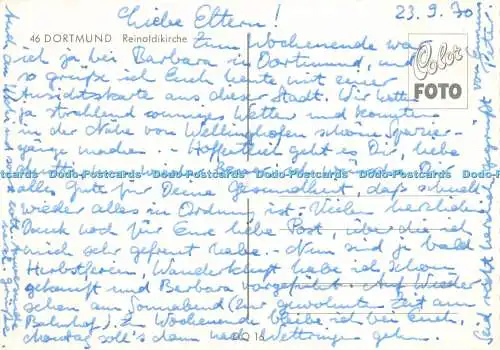 Liebe Eltern!
23.9.70
46 DORTMUND Reinoldikirche
Color
FOTO
Zum Wochenende war
ich ja bei Barbara in Dortmund, und
so grüße ich Euch heute mit einer
Ansichtskarte aus dieser Stadt. Wir hatten
ja strahlend sonniges Wetter und konnten
in der Nähe von Wellinghofen schöne Spazier-
gänge machen. - Hoffentlich geht es Dir, liebe
Dodo-Postcards Dodo-Postcards Dodo-Postcards Dodo-Postcards Dodo-Postcards
alles Gute für Deine Gesundheit, daß schnell
wieder alles in Ordnung ist. Vielen herzlichen
Dank noch für Eure liebe Post, über die ich
mich sehr gefreut habe. - Nun sind ja bald
Herbstferien, Wanderkarte habe ich schon
gekauft und Barbara vorgeführt. Auf Wieder
sehen am Sonnabend (zur gewohnten Zeit am
Bahnhof). Zum Wochenende bleibe ich bei Euch,
Montag soll's dann nach Wettringen gehen.
Seid recht herzlich gegrüßt von Eurem
Peter